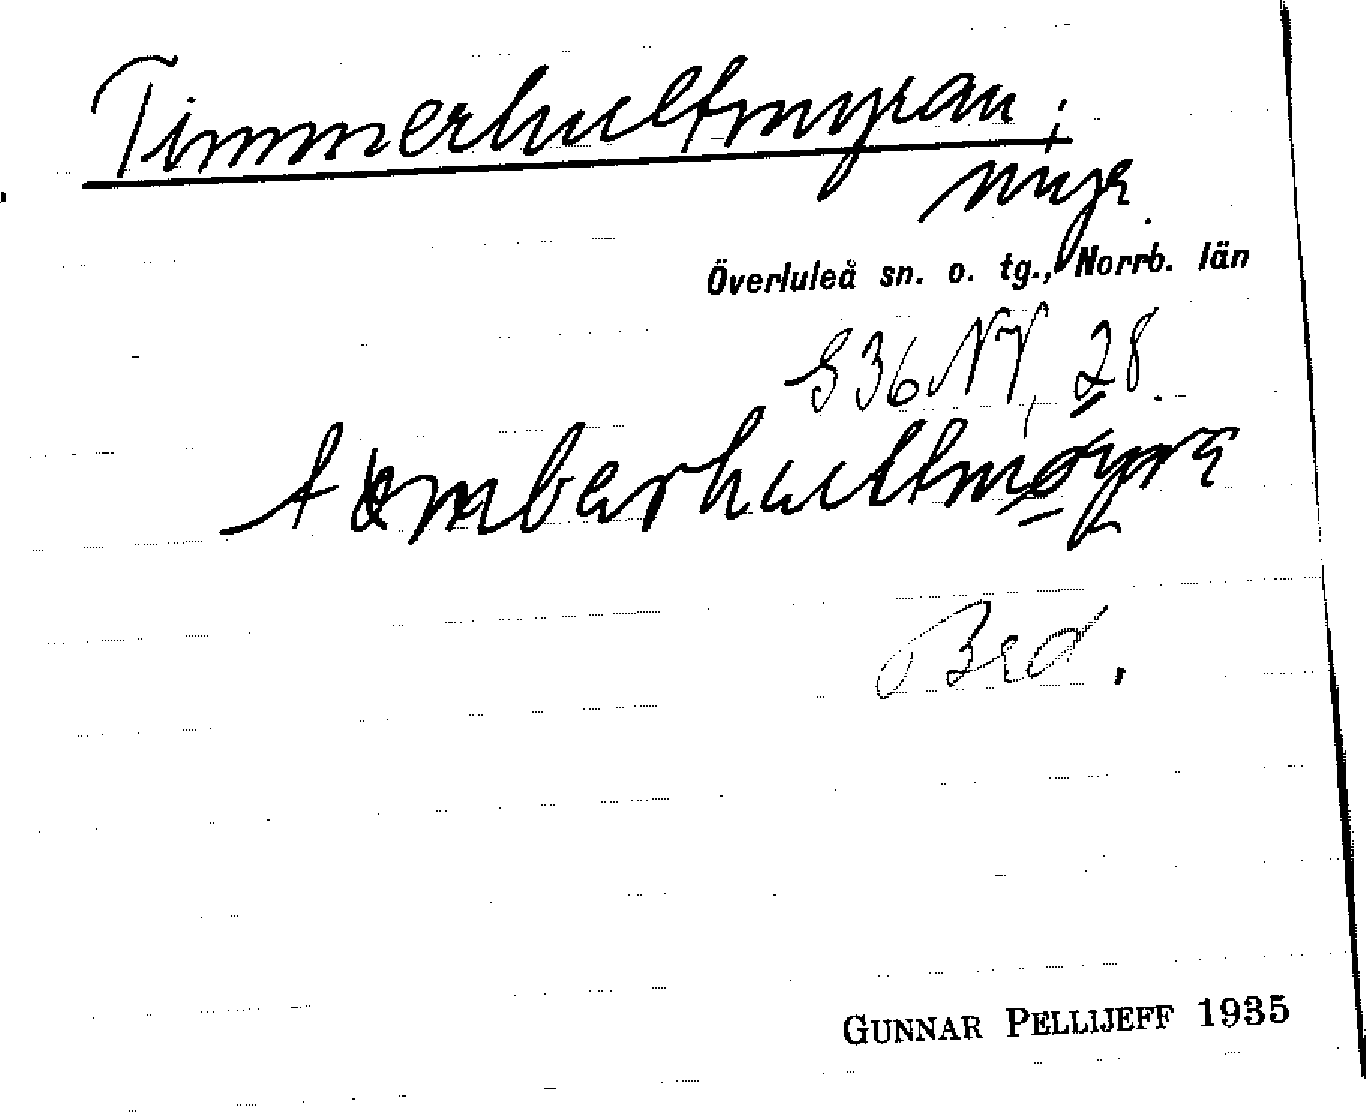 Timmerhultmyran;
myr.
Överluleå sn. o. tg., Norrb. län
S36NV, 28.
Bred.
GUNNAR PELLIJEFF 1935